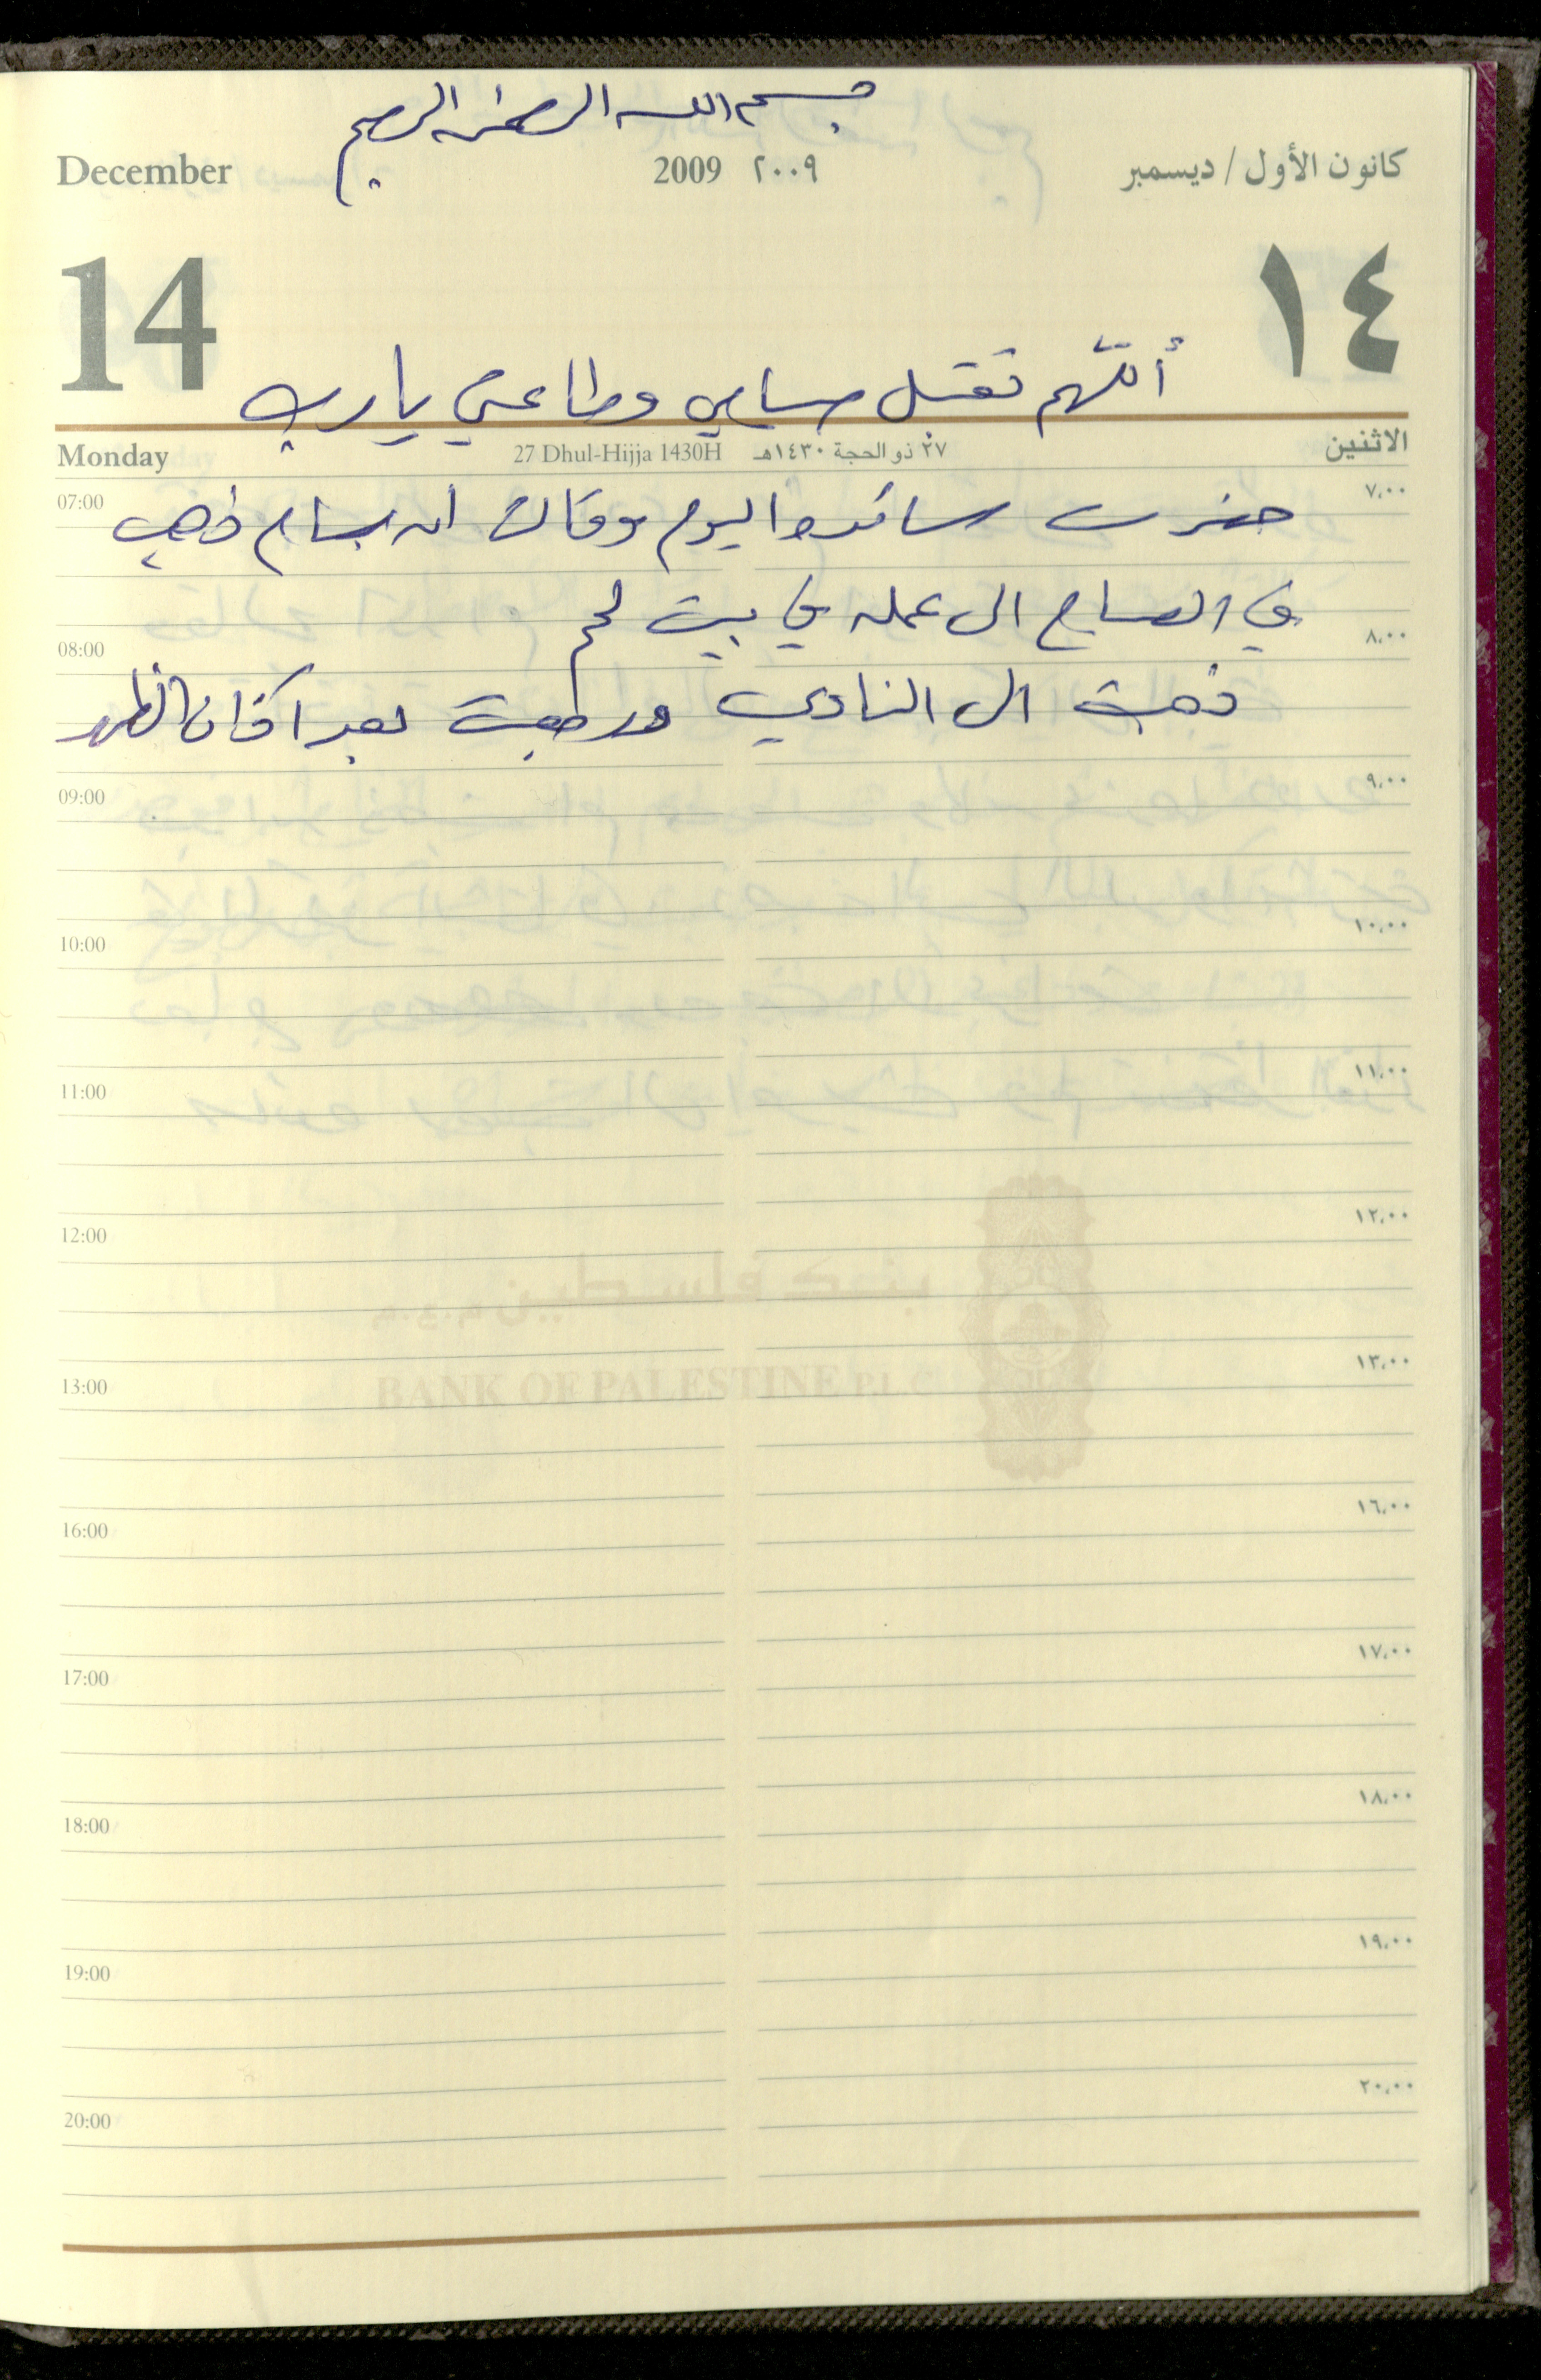 بسم الله الرحمن الرحيم
December 2009 ٢٠٠٩ كانون الأول / ديسمبر
14 ١٤
أللّهم تقبل صيامي وطاعتي يا رب
Monday 27 Dhul-Hijja 1430H ٢٧ ذو الحجة ١٤٣٠هـ الاثنين
07:00 ٧,٠٠
حضرت ساندرا اليوم وقالت ان بسام ذهب
في الصباح الى عمله في بيت لحم
08:00 ٨,٠٠
ذهبت الى النادي ورجعت بعد آذان الظهر
09:00 ٩,٠٠
10:00 ١٠,٠٠
11:00 ١١,٠٠
12:00 ١٢,٠٠
بنك فلسطين م.ع.م
BANK OF PALESTINE P.L.C
13:00 ١٣,٠٠
16:00 ١٦,٠٠
17:00 ١٧,٠٠
18:00 ١٨,٠٠
19:00 ١٩,٠٠
20:00 ٢٠,٠٠